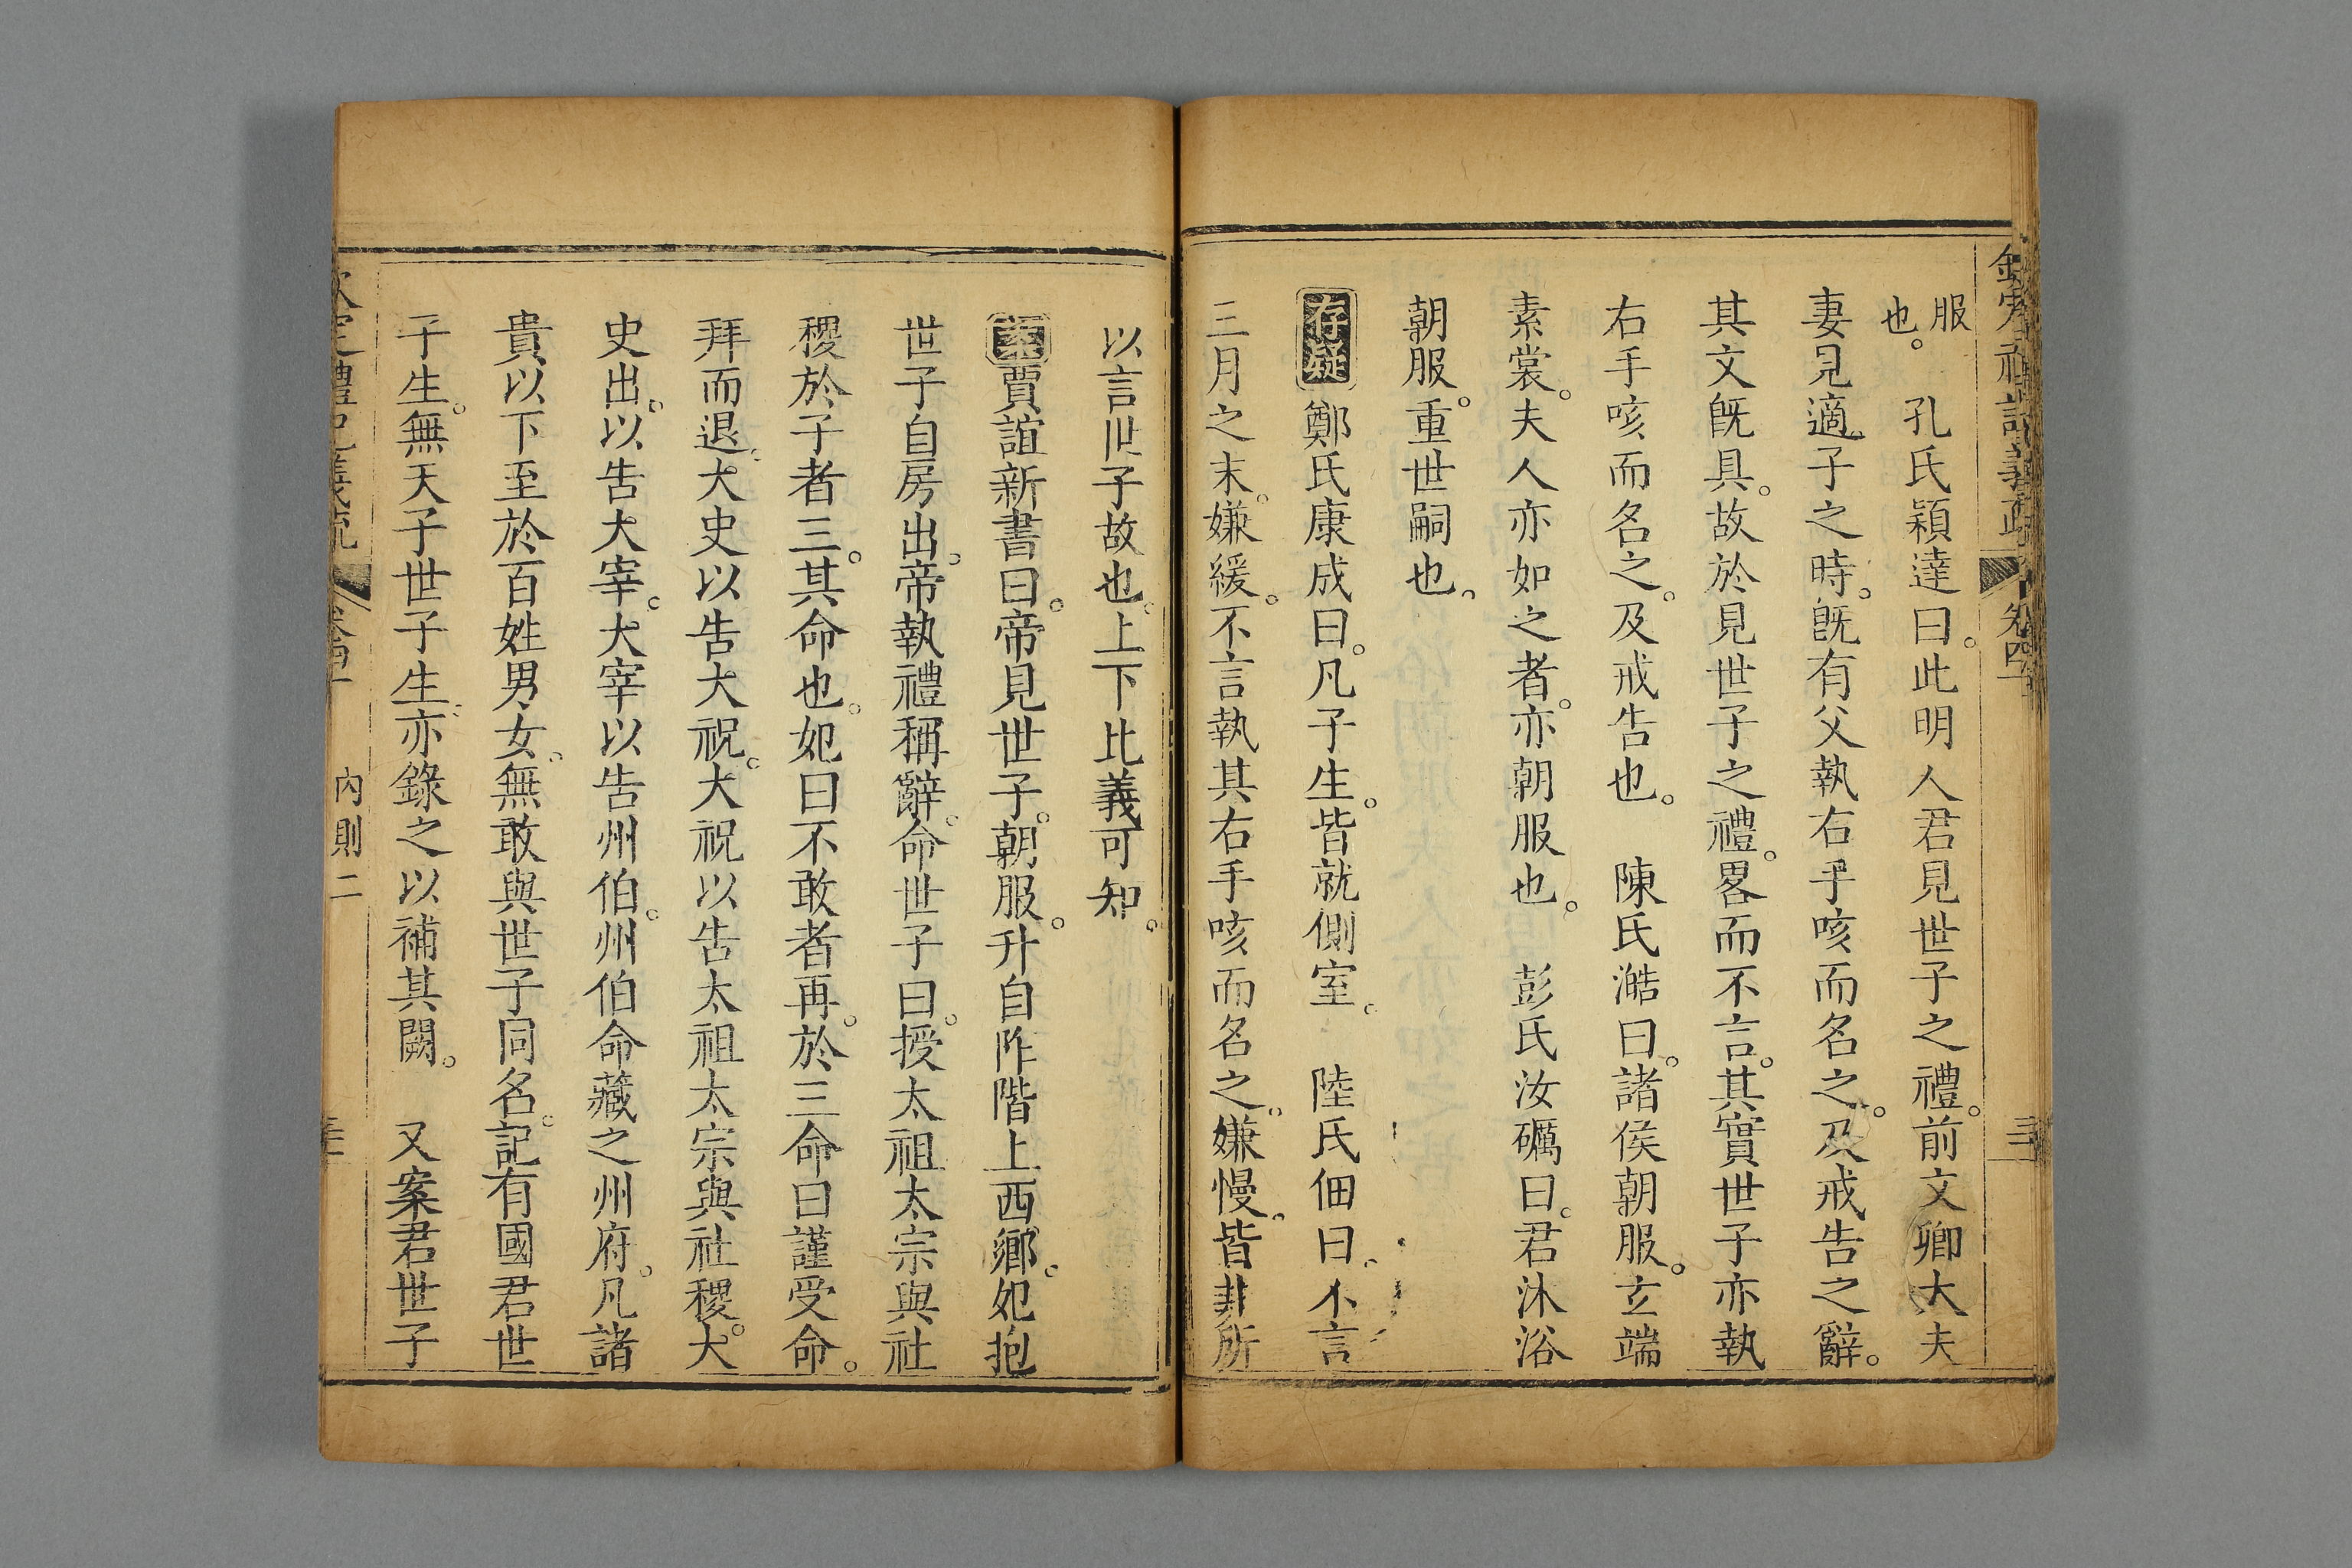 服也。　孔氏穎達曰。此明人君見世子之禮。前文卿大夫
妻見適子之時。旣有父執右手咳而名之。及戒告之辭。
其文旣具。故於見世子之禮。畧而不言。其實世子亦執
右手咳而名之。及戒告也。　陳氏澔曰。諸侯朝服。玄端
素裳。夫人亦如之者。亦朝服也。　彭氏汝礪曰。君沐浴
朝服。重世嗣也。
存疑　鄭氏康成曰。凡子生。皆就側室。　陸氏佃曰。不言
三月之末。嫌緩。不言執其右手咳而名之。嫌慢。皆非所
以言世子故也。上下比義可知。
案賈誼新書曰。帝見世子。朝服。升自阼階上西鄉。妃抱
世子自房出。帝執禮稱辭。命世子曰。授太祖太宗與社
稷於子者三。其命也。妃曰不敢者再。於三命曰謹受命。
拜而退。大史以告大祝。大祝以告太祖太宗與社稷。大
史出。以告大宰。大宰以告州伯。州伯命藏之州府。凡諸
貴以下至於百姓男女。無敢與世子同名。記有國君世
子生。無天子世子生。亦錄之以補其闕。　又案君世子
內則二